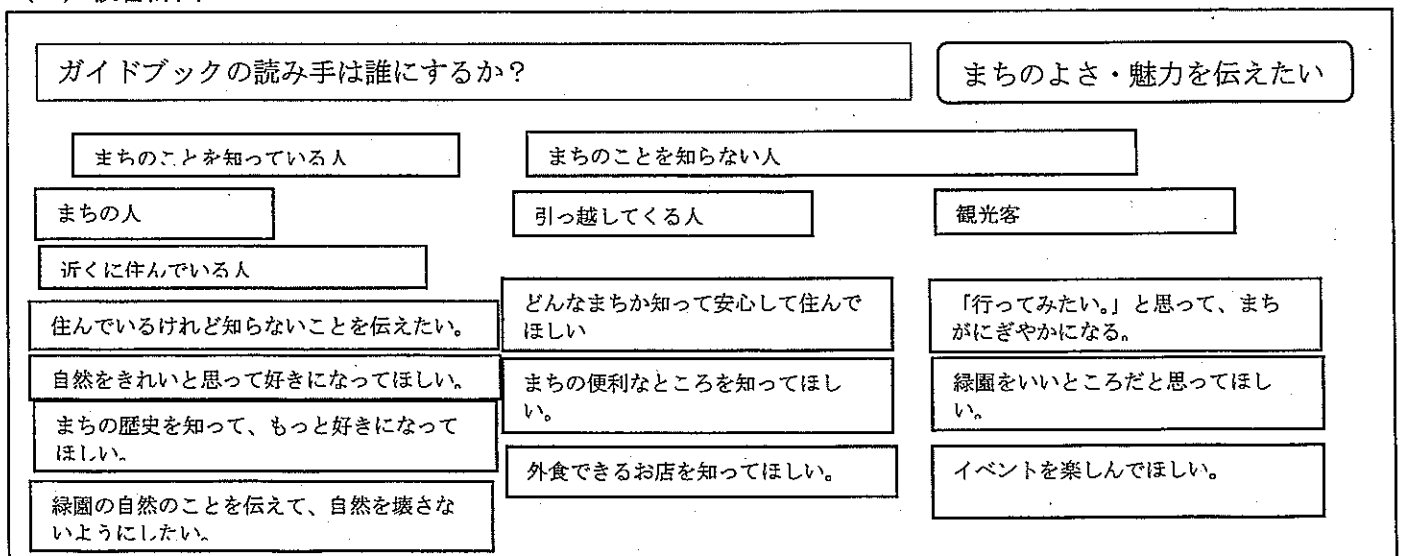 ガイドブックの読み手は誰にするか？
まちのよさ・魅力を伝えたい
まちのことを知っている人
まちのことを知らない人
まちの人
引っ越してくる人
観光客
近くに住んでいる人
住んでいるけれど知らないことを伝えたい。
自然をきれいと思って好きになってほしい。
まちの歴史を知って、もっと好きになって
ほしい。
緑園の自然のことを伝えて、自然を壊さな
いようにしたい。
どんなまちか知って安心して住んで
ほしい
まちの便利なところを知ってほし
い。
外食できるお店を知ってほしい。
「行ってみたい。」と思って、まち
がにぎやかになる。
緑園をいいところだと思ってほし
い。
イベントを楽しんでほしい。